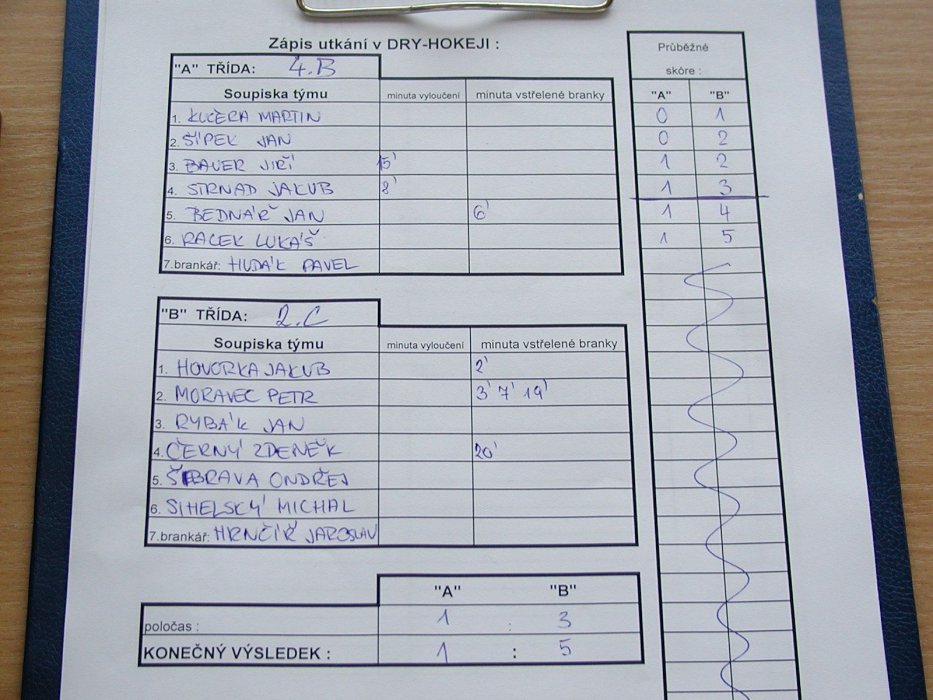 Zápis utkání v DRY-HOKEJI :
"A" TŘÍDA: 4.B
Soupiska týmu minuta vyloučení minuta vstřelené branky
1. KUČERA MARTIN
2. ŠÍPEK JAN
3. BAUER JIŘÍ 15'
4. STRNAD JAKUB 8'
5. BEDNÁŘ JAN 6'
6. RACEK LUKÁŠ
7.brankář: HUDÁK PAVEL
"B" TŘÍDA: 2.C
Soupiska týmu minuta vyloučení minuta vstřelené branky
1. HOVORKA JAKUB 2'
2. MORAVEC PETR 3' 7' 19'
3. RYBÁK JAN
4. ČERNÝ ZDENĚK 20'
5. ŠEBRAVA ONDŘEJ
6. SIHELSKÝ MICHAL
7.brankář: HRNČÍŘ JAROSLAV
"A" "B"
poločas : 1 : 3
KONEČNÝ VÝSLEDEK : 1 : 5
Průběžné
skóre :
"A" "B"
0 1
0 2
1 2
1 3
1 4
1 5